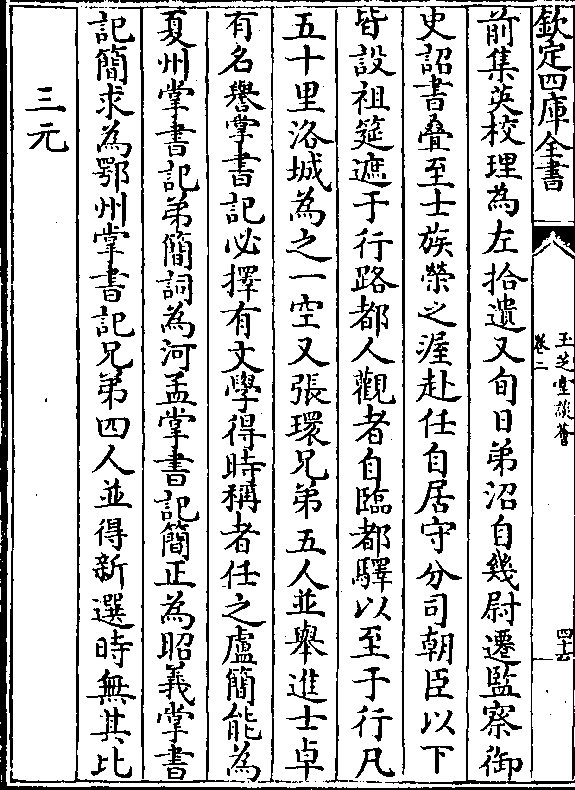 欽定四庫全書
玉芝堂談薈
卷二
四十六
前集英校理為左拾遺又旬日弟沼自幾尉遷監察御
史詔書疊至士族榮之渥赴任自居守分司朝臣以下
皆設祖筵遮于行路都人觀者自臨都驛以至于行凡
五十里洛城為之一空又張環兄弟五人並舉進士卓
有名譽掌書記必擇有文學得時稱者任之盧簡能為
夏州掌書記弟簡詞為河孟掌書記簡正為昭義掌書
記簡求為鄂州掌書記兄弟四人並得新選時無其比
三元